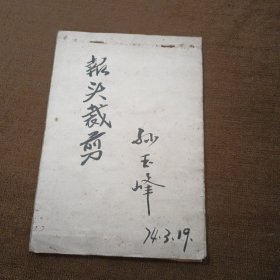 报头裁剪
孙玉峰
74.3.19.